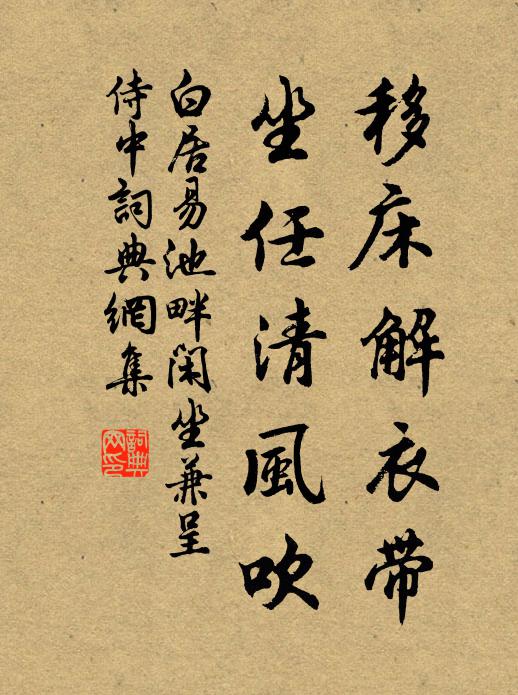 移床解衣带
坐任清風吹
白居易池畔闲坐兼呈
侍中詞典網集
詞典网印